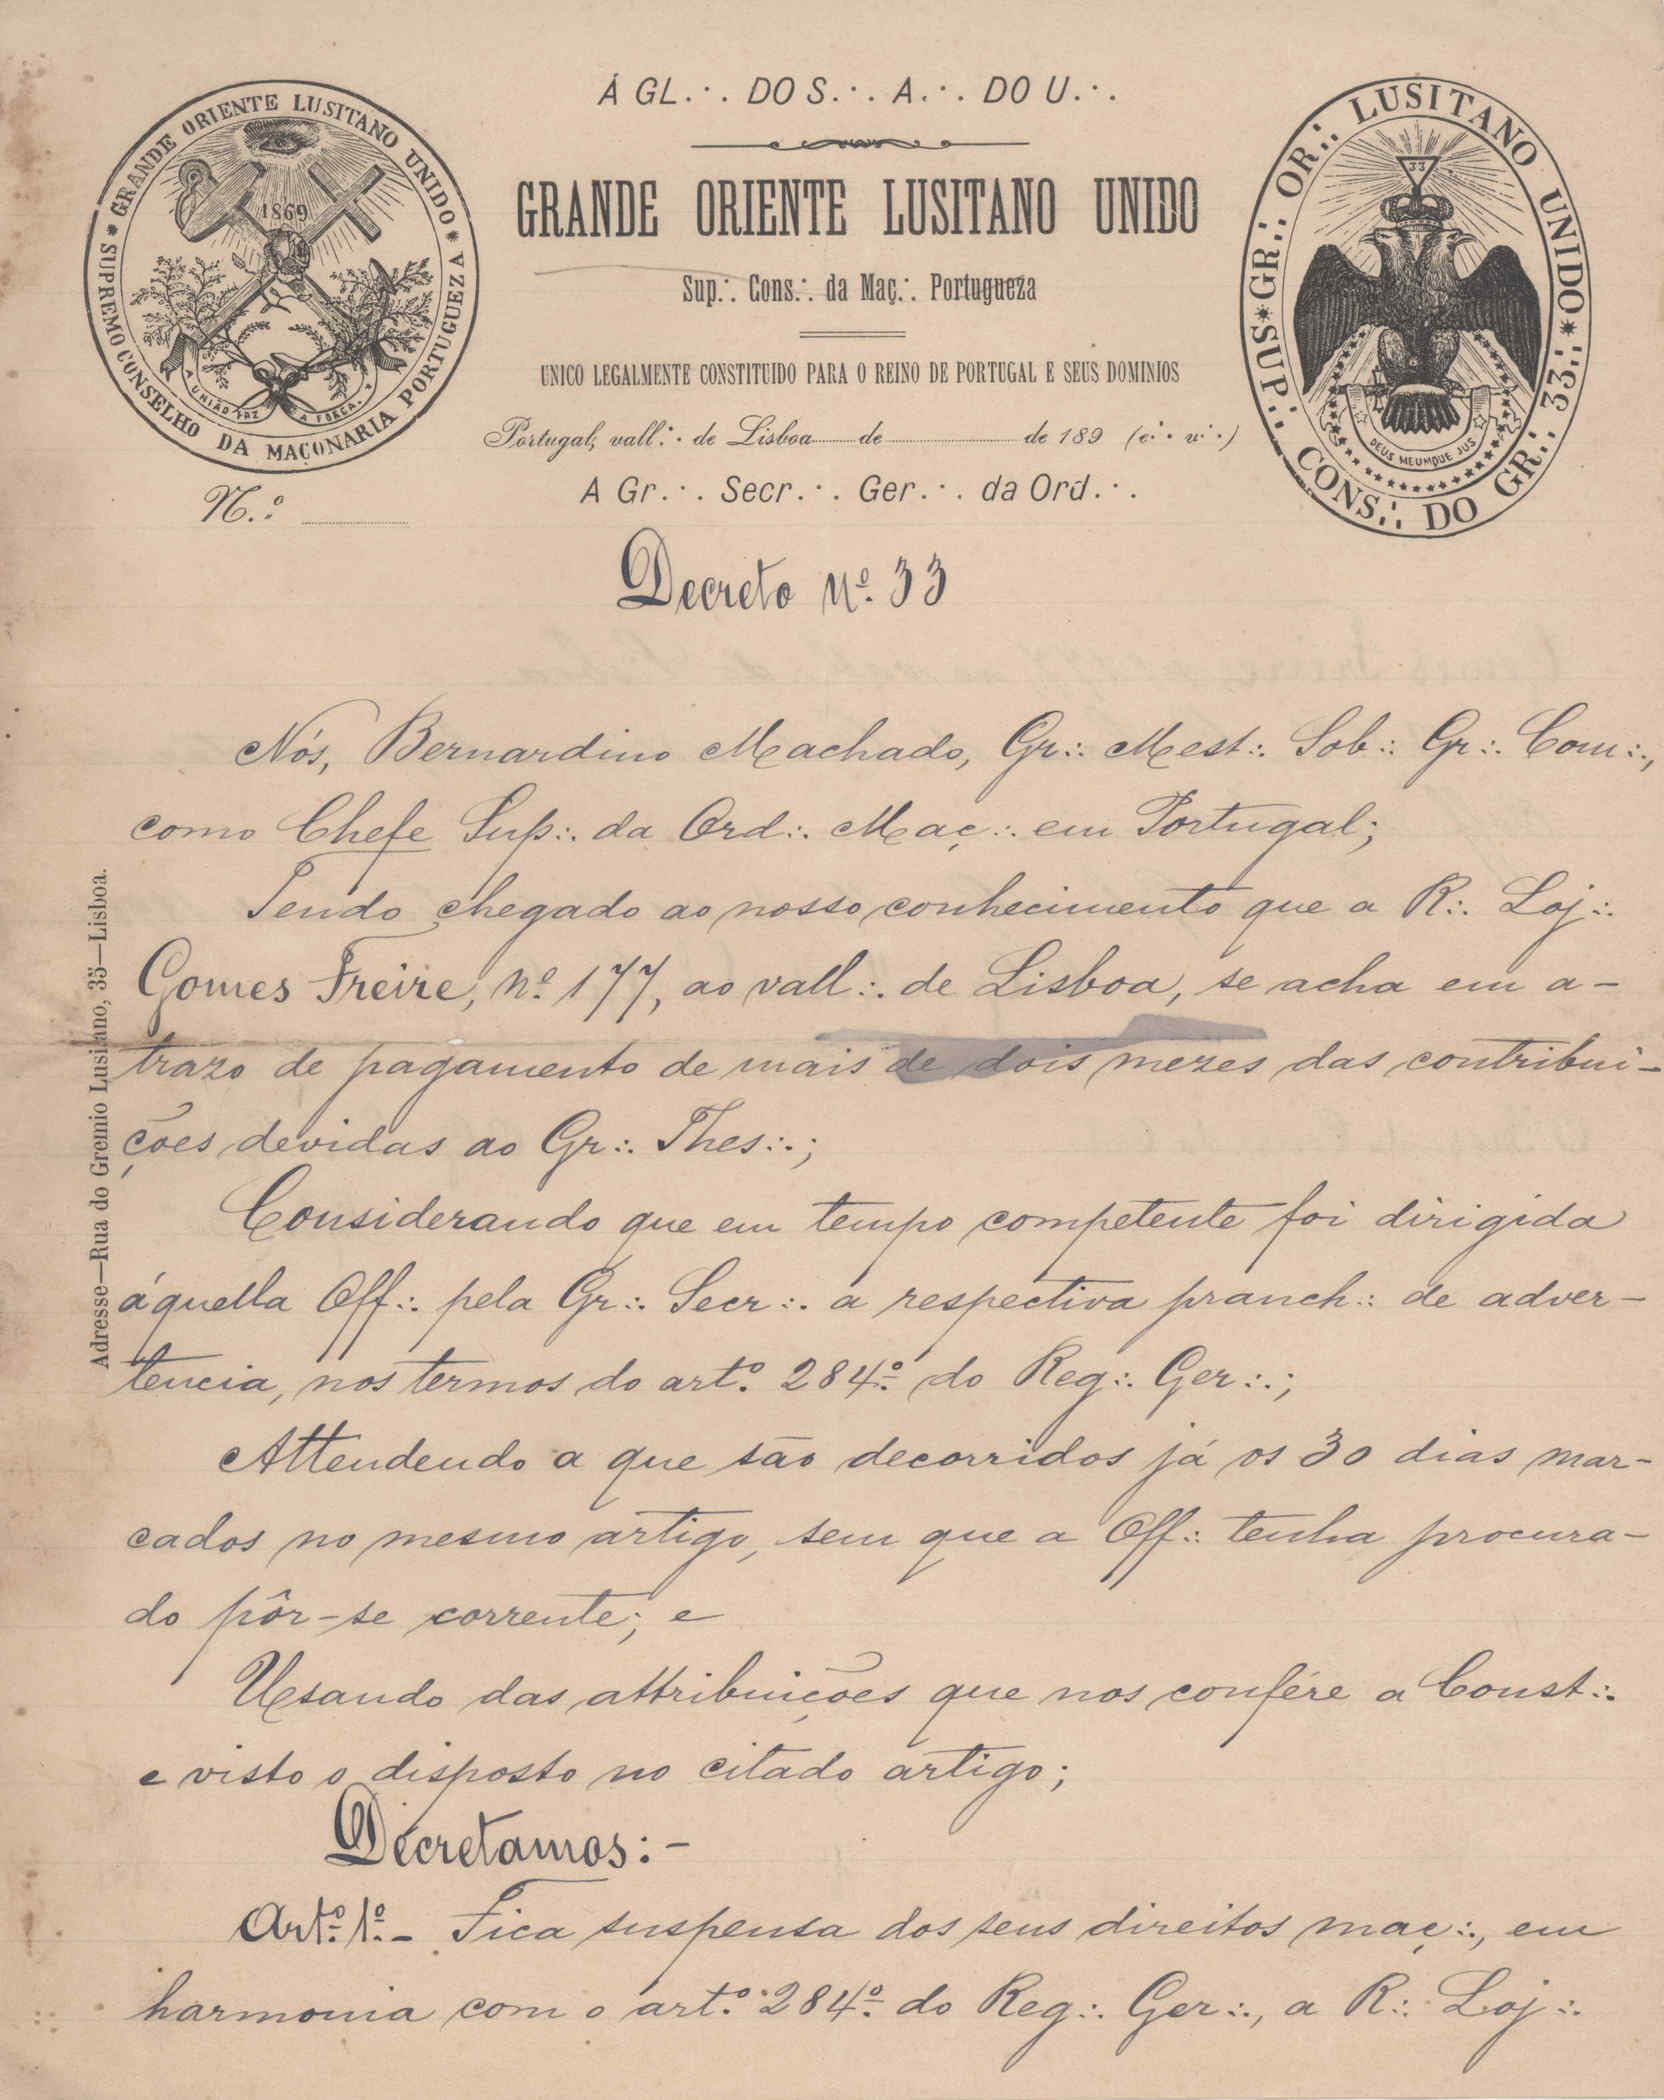 Á GL.·. DO S.·. A.·. DO U.·.
GRANDE ORIENTE LUSITANO UNIDO * SUPREMO CONSELHO DA MAÇONARIA PORTUGUEZA *
1869
A UNIÃO FAZ A FORÇA.
GRANDE ORIENTE LUSITANO UNIDO
Sup.·. Cons.·. da Maç.·. Portugueza
UNICO LEGALMENTE CONSTITUIDO PARA O REINO DE PORTUGAL E SEUS DOMINIOS
Portugal, vall.·. de Lisboa ... de ... de 189 (e.·. v.·.)
A Gr.·. Secr.·. Ger.·. da Ord.·.
SUP.·. CONS.·. DO GR.·. 33.·. * GR.·. OR.·. LUSITANO UNIDO *
33
DEUS MEUMQUE JUS
N.º
Decreto Nº. 33
Nós, Bernardino Machado, Gr.·. Mest.·. Sob.·. Gr.·. Com.·.,
como Chefe Sup.·. da Ord.·. Maç.·. em Portugal;
Tendo chegado ao nosso conhecimento que a R.·. Loj.·.
Gomes Freire, nº. 177, ao vall.·. de Lisboa, se acha em a-
trazo de pagamento de mais de dois mezes das contribui-
ções devidas ao Gr.·. Thes.·.;
Considerando que em tempo competente foi dirigida
áquella Off.·. pela Gr.·. Secr.·. a respectiva pranch.·. de adver-
tencia, nos termos do artº. 284º. do Reg.·. Ger.·.;
Attendendo a que são decorridos já os 30 dias mar-
cados no mesmo artigo, sem que a Off.·. tenha procura-
do pôr-se corrente; e
Usando das attribuições que nos confére a Const.·.
e visto o disposto no citado artigo;
Decretamos:-
Artº. 1º.- Fica suspensa dos seus direitos maç.·., em
harmonia com o artº. 284º. do Reg.·. Ger.·., a R.·. Loj.·.
Adresse—Rua do Gremio Lusitano, 35—Lisboa.